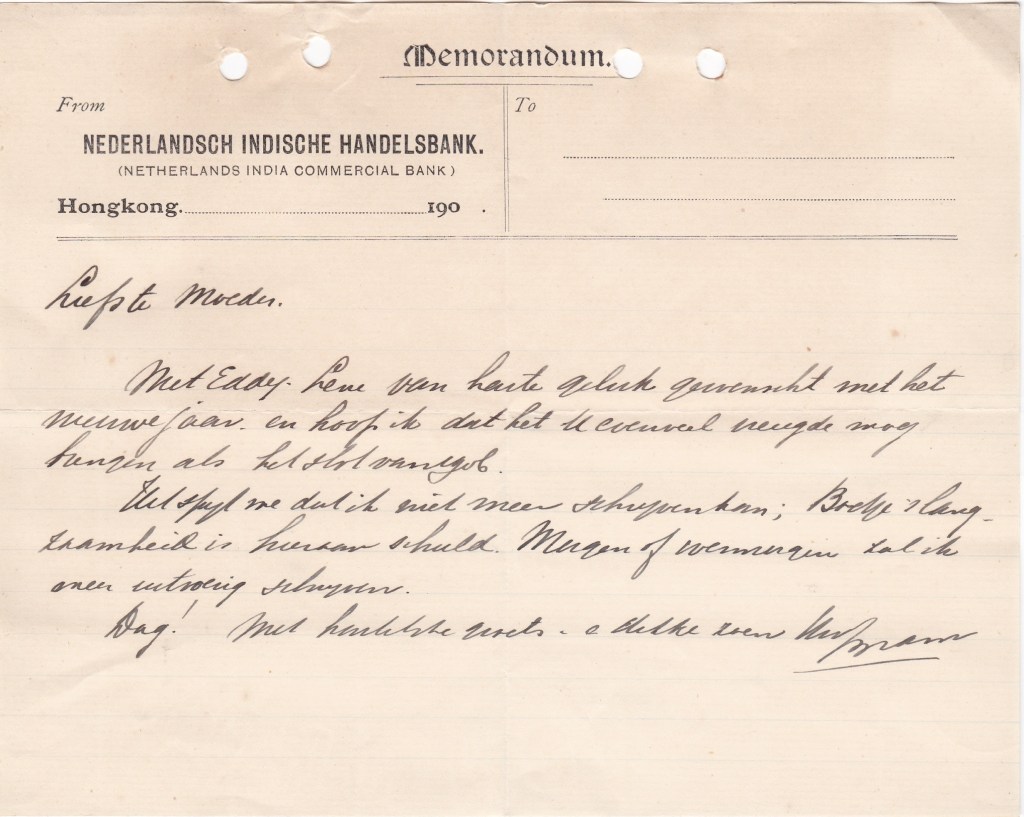 Memorandum.
From
To
NEDERLANDSCH INDISCHE HANDELSBANK.
(NETHERLANDS INDIA COMMERCIAL BANK)
Hongkong. 190 .
Liefste Moeder.
Met Eddy. Leve van harte geluk gewenscht met het
nieuwe jaar. en hoop ik dat het U evenveel vreugde mog
brengen als het slot van
Het spijt me dat ik niet meer schrijven kan; Boetje's lang-
zaamheid is hieraan schuld. Morgen of overmorgen zal ik
meer uitvoerig schrijven.
Dag! Met hartelijke groets. zoen